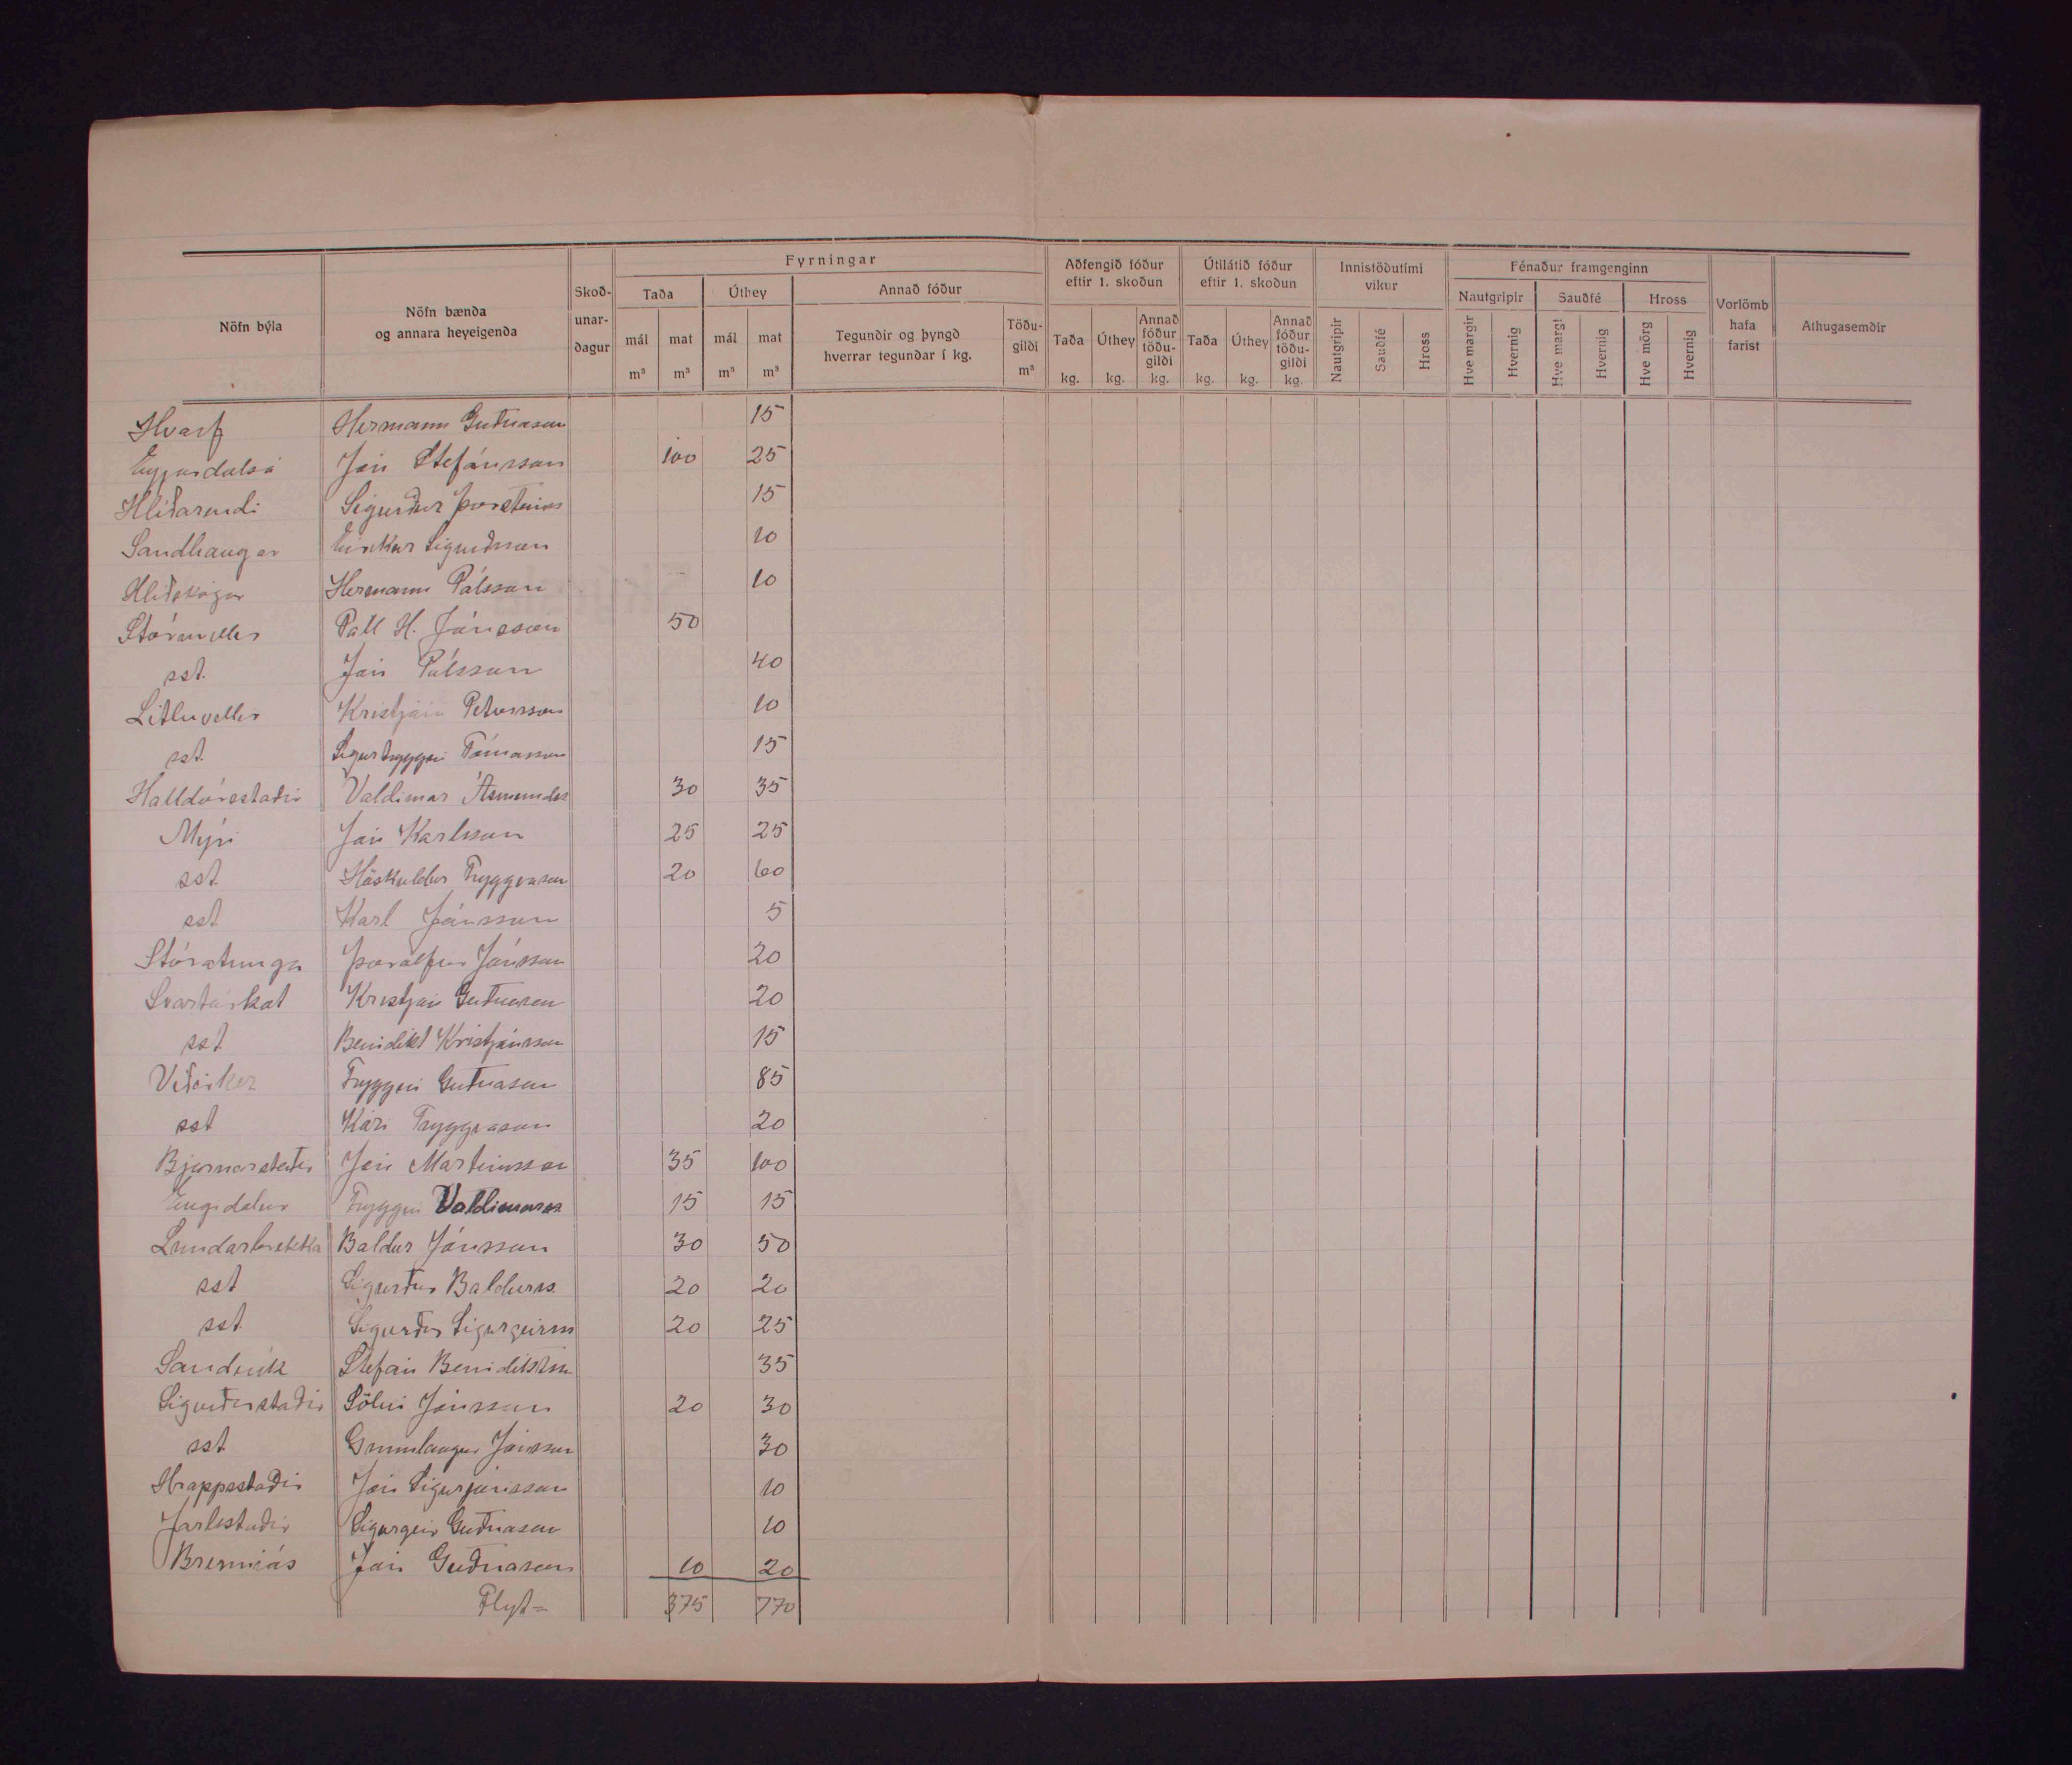 Fyrningar
Aðfengið fóður eftir 1. skoðun
Útilátið fóður eftir 1. skoðun
Innistöðutími vikur
Fénaður framgenginn
Nöfn býla
Nöfn bænda og annara heyeigenda
Skoð-unar-dagur
Taða
Úthey
Annað fóður
Nautgripir
Sauðfé
Hross
Vorlömb hafa farist
Athugasemdir
mál m³
mat m³
mál m³
mat m³
Tegundir og þyngd hverrar tegundar í kg.
Töðu-gildi m³
Taða kg.
Úthey kg.
Annað fóður töðu-gildi kg.
Taða kg.
Úthey kg.
Annað fóður töðu-gildi kg.
Nautgripir
Sauðfé
Hross
Hve margir
Hvernig
Hve margt
Hvernig
Hve mörg
Hvernig
Hvarf Hermann Guðnason 15
Eyjardalsá Jón Stefánsson 100 25
Hlíðarendi Sigurður Þorsteins 15
Sandhaugar Eiríkur Sigurðsson 10
Hlíðskógar Hermann Pálsson 10
Stóruvellir Páll H. Jónsson 50
sst. Jón Pálsson 40
Litluvellir Kristján Pétursson 10
sst. Sigurtryggvi Tómasson 15
Halldórsstaðir Valdimar Ásmunds 30 35
Mýri Jón Karlsson 25 25
sst Höskuldur Tryggvason 20 60
sst Karl Jónsson 5
Stóratunga Þórólfur Jónsson 20
Svartárkot Kristján Guðnason 20
sst. Benidikt Kristjánsson 15
Víðiker Tryggvi Guðnason 85
sst Kári Tryggvason 20
Bjarnarstaðir Jón Marteinsson 35 100
Engidalur Tryggvi Valdimarss 15 15
Lundarbrekka Baldur Jónsson 30 50
sst Sigurður Baldurss. 20 20
sst. Sigurður Sigurgeirss 20 25
Sandvík Stefán Benidiktsson 35
Sigurðarstaðir Sölvi Jónsson 20 30
sst Gunnlaugur Jónsson 30
Hrappsstaðir Jón Sigurjónsson 10
Jarlsstaðir Sigurgeir Guðnason 10
Brenniás Jón Guðnason 10 20
Flyt= 375 770